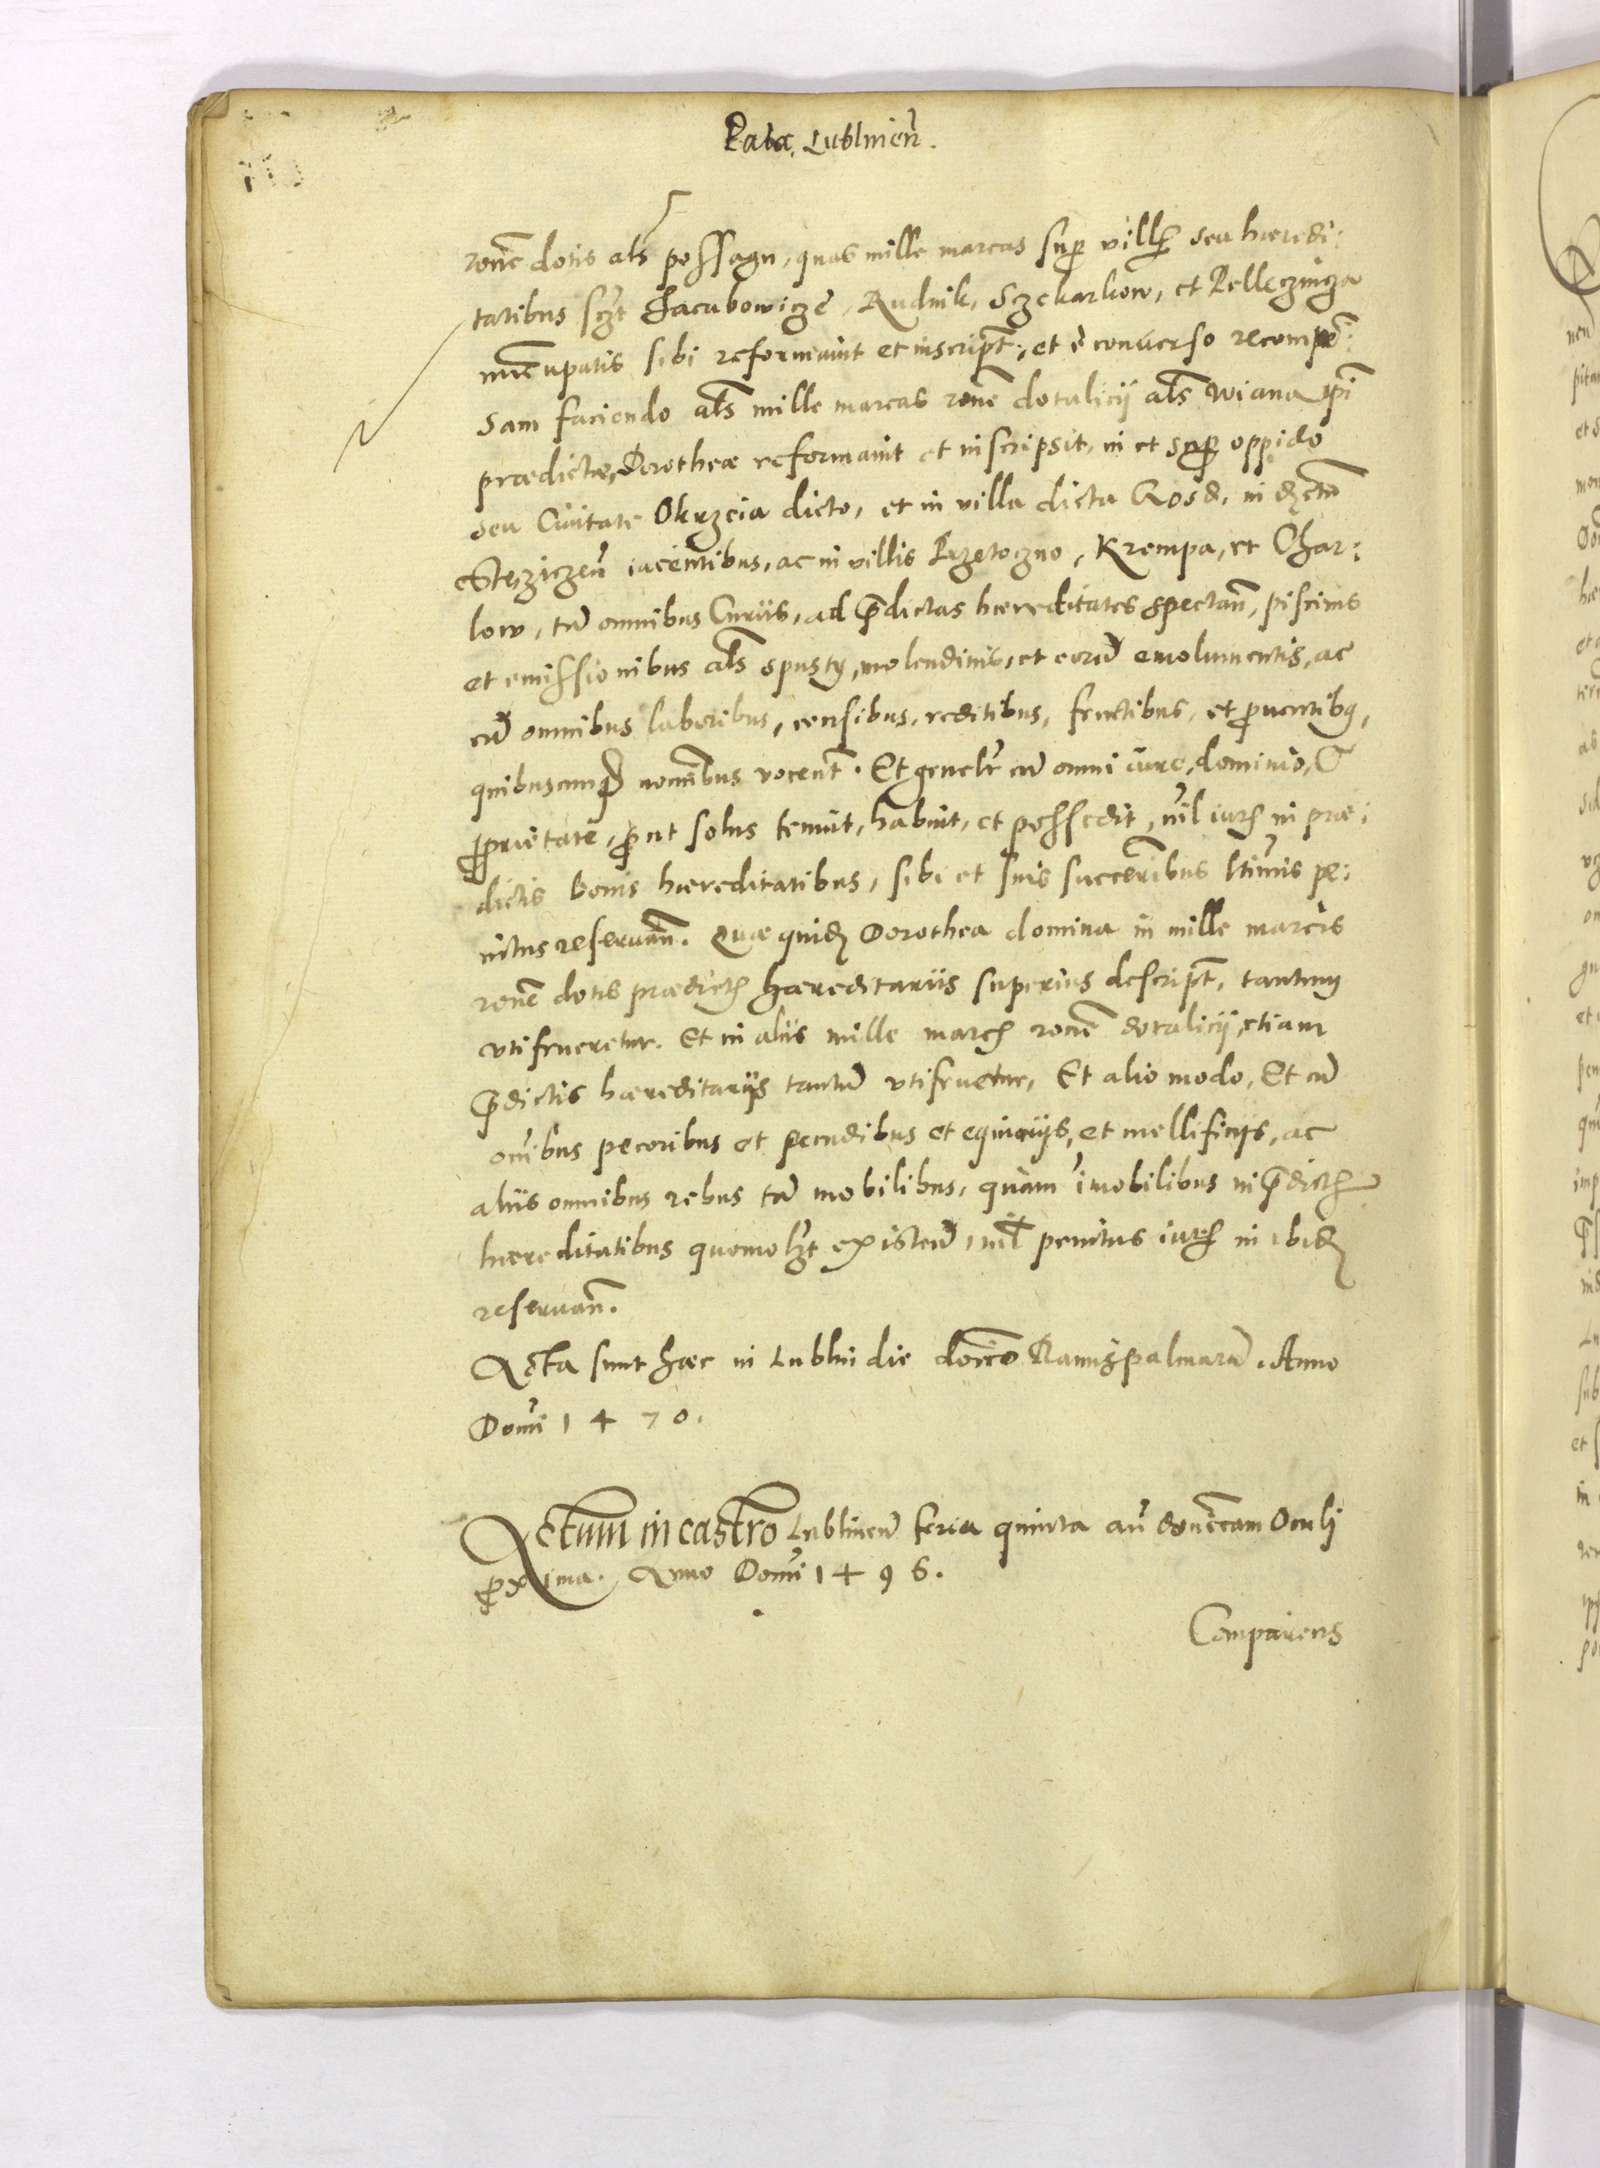 Pala. Lublinen.
rone dotis als possagu, quas mille marcas sup villis seu hæredi:
tatibus sczt Jacubowicze, Rudnik, Sczekarkow, et Pelleczincza
nuncupatis sibi reformauit et inscript; et e conuerso recompe:
sam faciendo als mille marcas rone dotalicij als wiana ipi
prædictæ Dorotheæ reformauit et inscripsit, in et sup oppido
seu Ciuitate Okrzeia dicto, et in villa dicta Gosd, in dctu
Stezyczen iacentibus, ac in villis Przetoczno, Krempa, et Char:
low, cu omnibus Curiis, ad prædictas hæreditates spectan, piscinis
et emissionibus als spusty, molendinis, et eoru emolumentis, ac
cu omnibus laboribus, censibus, reditibus, fructibus, et prouentibq,
quibuscunq nominibus vocent. Et genelr cu omni iure, dominio, &
proprietate, prout solus tenuit, habuit, et possedit, nil iuris in præ:
dictis bonis hæreditatibus, sibi et suis succeribus ltimis pe:
nitus reseruan. Quæ quidem Dorothea domina in mille marcis
rone dotis prædictis hæreditariis superius descript, tantum
vtifrueretur. Et in aliis mille marcis rone dotalicij, etiam
prædictis hæreditarijs tantu vtifruetur, Et alio modo, Et cu
omibus pecoribus et pecudibus et equirijs, et mellificijs, ac
aliis omnibus rebus ta mobilibus, quam imobilibus in prædictis
hæreditatibus quomolzt existen, nil penitus iuris in ibidem
reseruan.
Acta sunt hæc in Lublin die doico Ramispalmaru. Anno
Domi 1470.
Actum in castro Lublinen feria quinta an donicam Oculi
proxima. Anno Domi 1496.
Comparens